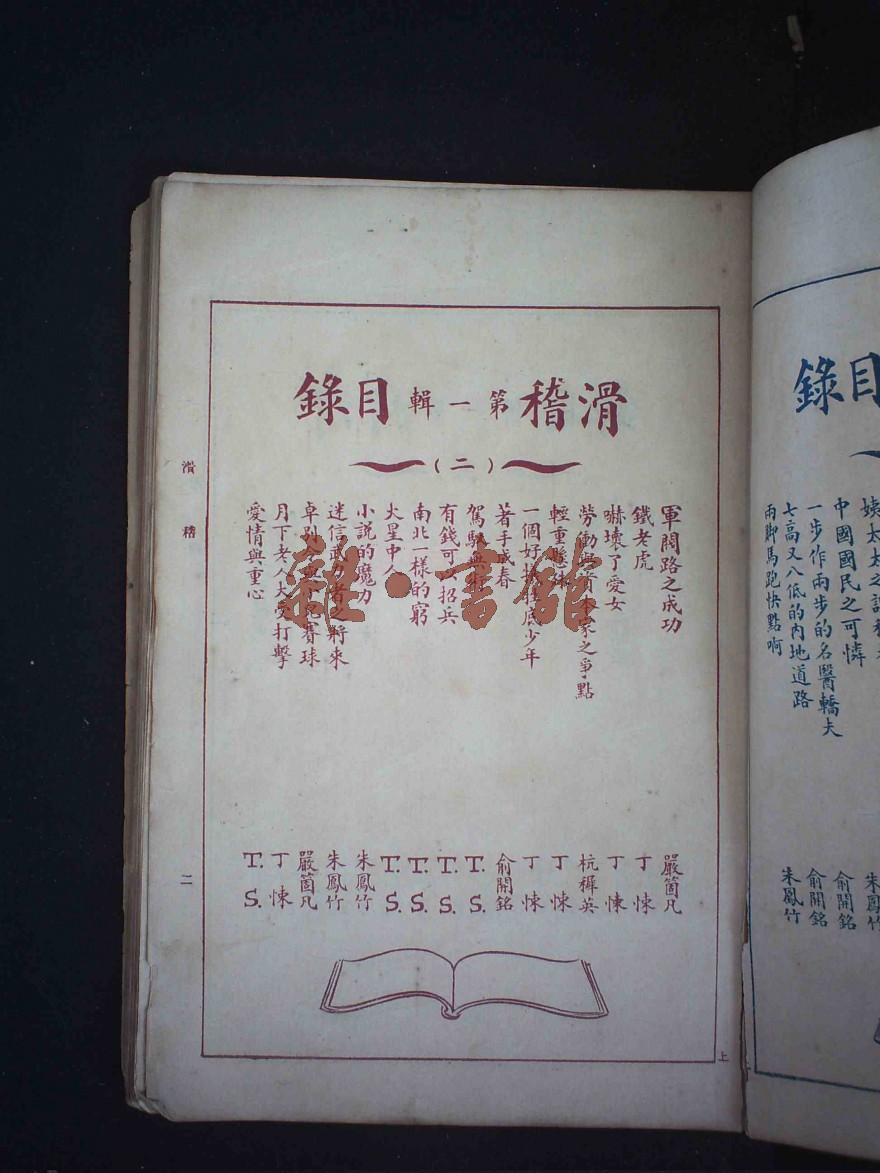 滑稽第一輯目錄
(二)
軍閥路之成功 嚴箇凡
鐵老虎 丁悚
嚇壞了愛女 丁悚
勞動與資本家之爭點 杭穉英
輕重懸殊 丁悚
一個好 底少年 丁悚
著手成春 俞開銘
駕 與 T.S.
有錢可以招兵 T.S.
南北一樣的窮 T.S.
大星中人 T.S.
小說的魔力 朱鳳竹
迷信武力者之將來 朱鳳竹
卓別 與 賽球 嚴箇凡
月下老人大受打擊 丁悚
愛情與重心 T.S.
滑稽
二
上
雜·書館
目錄
姨太太之
中國國民之可憐 朱鳳竹
一步作兩步的名醫轎夫 俞開銘
七高又八低的內地道路 俞開銘
兩脚馬跑快點啊 朱鳳竹